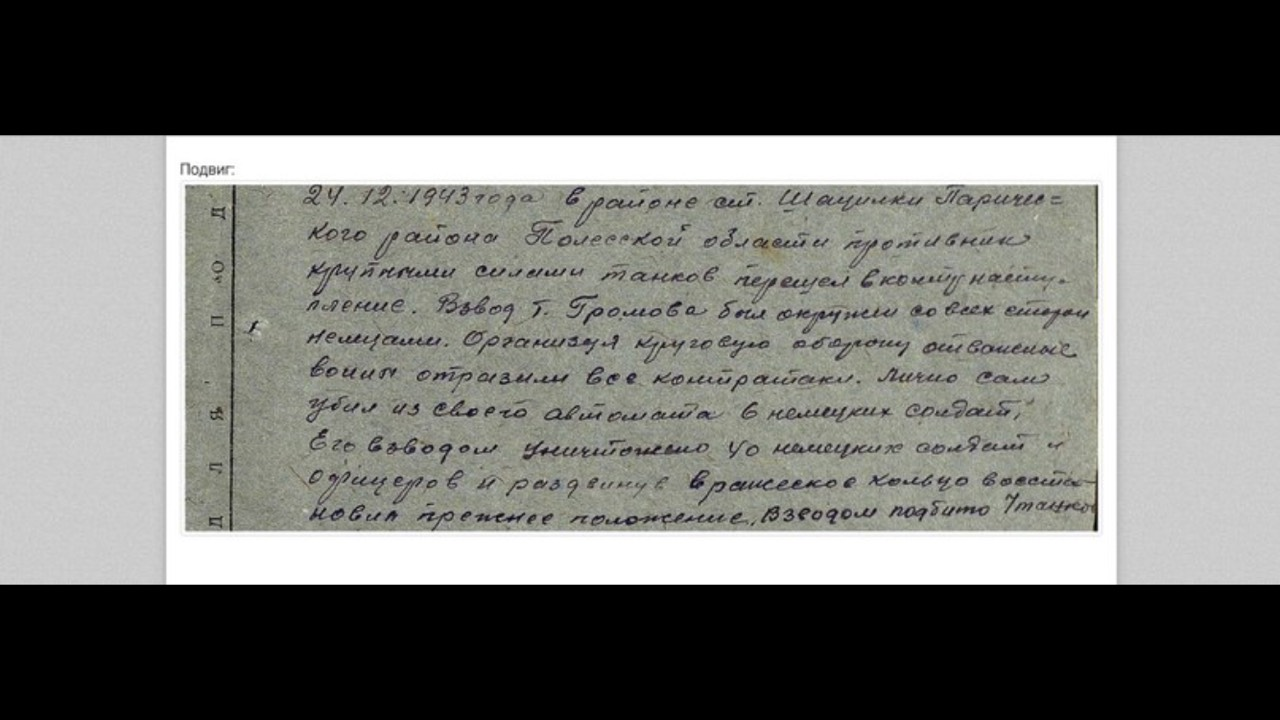 Подвиг:
24.12.1943 года в районе ст. Шацилки Паричес=
кого района Полесской области противник
крупными силами танков перешел в контрнасту-
пление. Взвод т. Громова был окружен со всех сторон
немцами. Организуя круговую оборону отважные
воины отразили все контратаки. Лично сам
убил из своего автомата 6 немецких солдат,
Его взводом уничтожено 40 немецких солдат и
офицеров и раздвинув вражеское кольцо восста-
новил прежнее положение. Взводом подбито 7 танков
Д Л Я П О Д